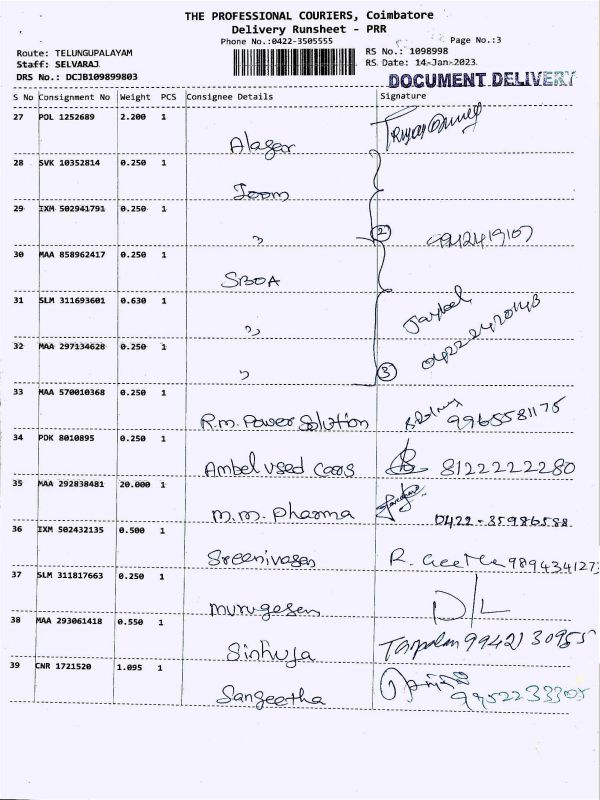 THE PROFESSIONAL COURIERS, Coimbatore
Delivery Runsheet - PRR
Phone No.:0422-3505555
Page No.:3
Route: TELUNGUPALAYAM
RS No.: 1098998
Staff: SELVARAJ
RS Date: 14-Jan-2023
DRS No.: DCJB109899803
DOCUMENT DELIVERY
S No Consignment No Weight PCS Consignee Details Signature
27 POL 1252689 2.200 1
Alager
28 SVK 10352814 0.250 1
29 IXM 502941791 0.250 1
" 2 9942419107
30 MAA 858962417 0.250 1
SBOA
31 SLM 311693601 0.630 1
"
0422 2420143
32 MAA 297134628 0.250 1
" 3
33 MAA 570010368 0.250 1
R.M. Power Solution 9965581175
34 PDK 8010895 0.250 1
Ambel used cars 8122222280
35 MAA 292838481 20.000 1
M.M. Pharma 0422-35986588
36 IXM 502432135 0.500 1
Sreenivasen R. Geetha 9894341273
37 SLM 311817663 0.250 1
murugesen D/L
38 MAA 293061418 0.550 1
Sinhuja 9942130955
39 CNR 1721520 1.095 1
Sangeetha 9952233305